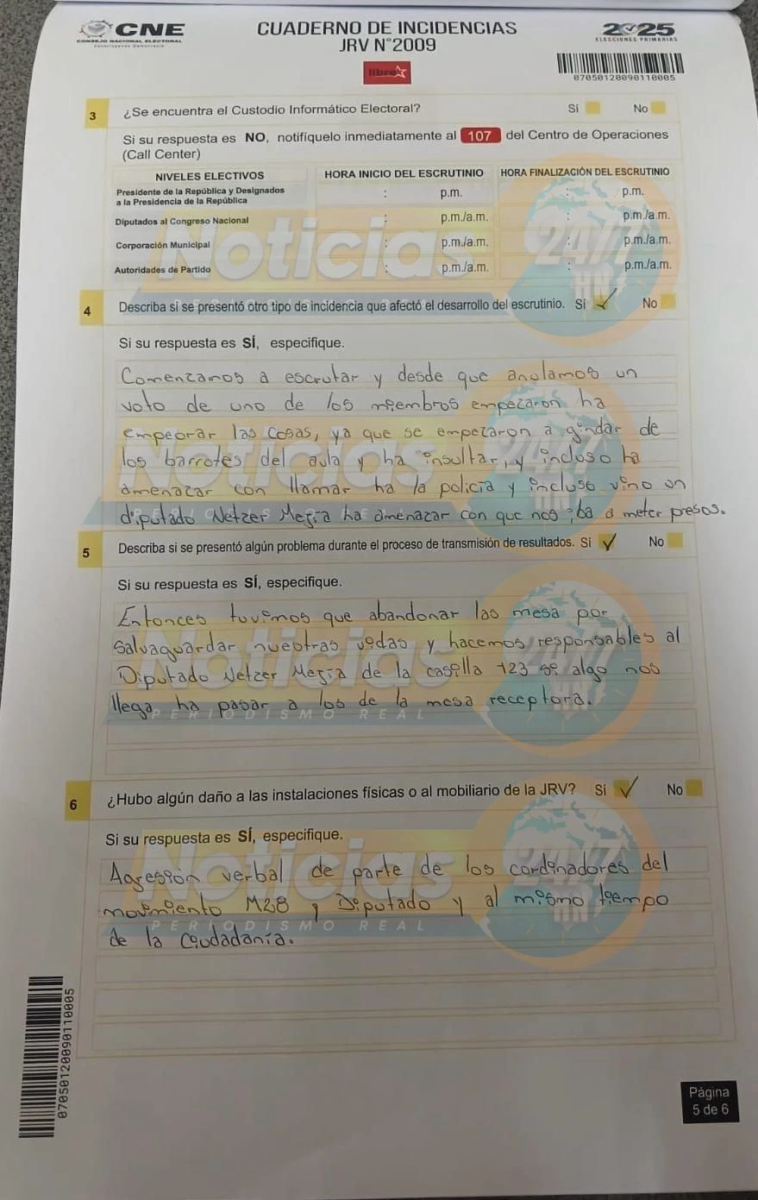 CNE
CONSEJO NACIONAL ELECTORAL
CUADERNO DE INCIDENCIAS
JRV N°2009
libre
2025
ELECCIONES PRIMARIAS
07050120090110005
3 ¿Se encuentra el Custodio Informático Electoral? Sí No
Si su respuesta es NO, notifíquelo inmediatamente al 107 del Centro de Operaciones
(Call Center)
NIVELES ELECTIVOS HORA INICIO DEL ESCRUTINIO HORA FINALIZACIÓN DEL ESCRUTINIO
Presidente de la República y Designados
a la Presidencia de la República : p.m. : p.m.
Diputados al Congreso Nacional : p.m./a.m. : p.m./a.m.
Corporación Municipal : p.m./a.m. : p.m./a.m.
Autoridades de Partido : p.m./a.m. : p.m./a.m.
Noticias 24/7 HN
PERIODISMO REAL
4 Describa si se presentó otro tipo de incidencia que afectó el desarrollo del escrutinio. Sí ✓ No
Si su respuesta es SÍ, especifique.
Comenzamos a escrutar y desde que anulamos un
voto de uno de los miembros empezaron ha
empeorar las cosas, ya que se empezaron a gindar de
los barrotes del aula y ha insultar, y incluso ha
amenazar con llamar ha la policía y incluso vino un
diputado Netzer Mejia ha amenazar con que nos iba a meter presos.
Noticias 24/7 HN
PERIODISMO REAL
5 Describa si se presentó algún problema durante el proceso de transmisión de resultados. Sí ✓ No
Si su respuesta es SÍ, especifique.
Entonces tuvimos que abandonar las mesa por
salvaguardar nuestras vidas y hacemos responsables al
Diputado Netzer Mejia de la casilla 123 si algo nos
llega ha pasar a los de la mesa receptora.
Noticias 24/7 HN
PERIODISMO REAL
6 ¿Hubo algún daño a las instalaciones físicas o al mobiliario de la JRV? Sí ✓ No
Si su respuesta es SÍ, especifique.
Agresión verbal de parte de los cordinadores del
movimiento M28 y Diputado y al mismo tiempo
de la ciudadanía.
Noticias 24/7 HN
PERIODISMO REAL
07050120090110005
Página
5 de 6